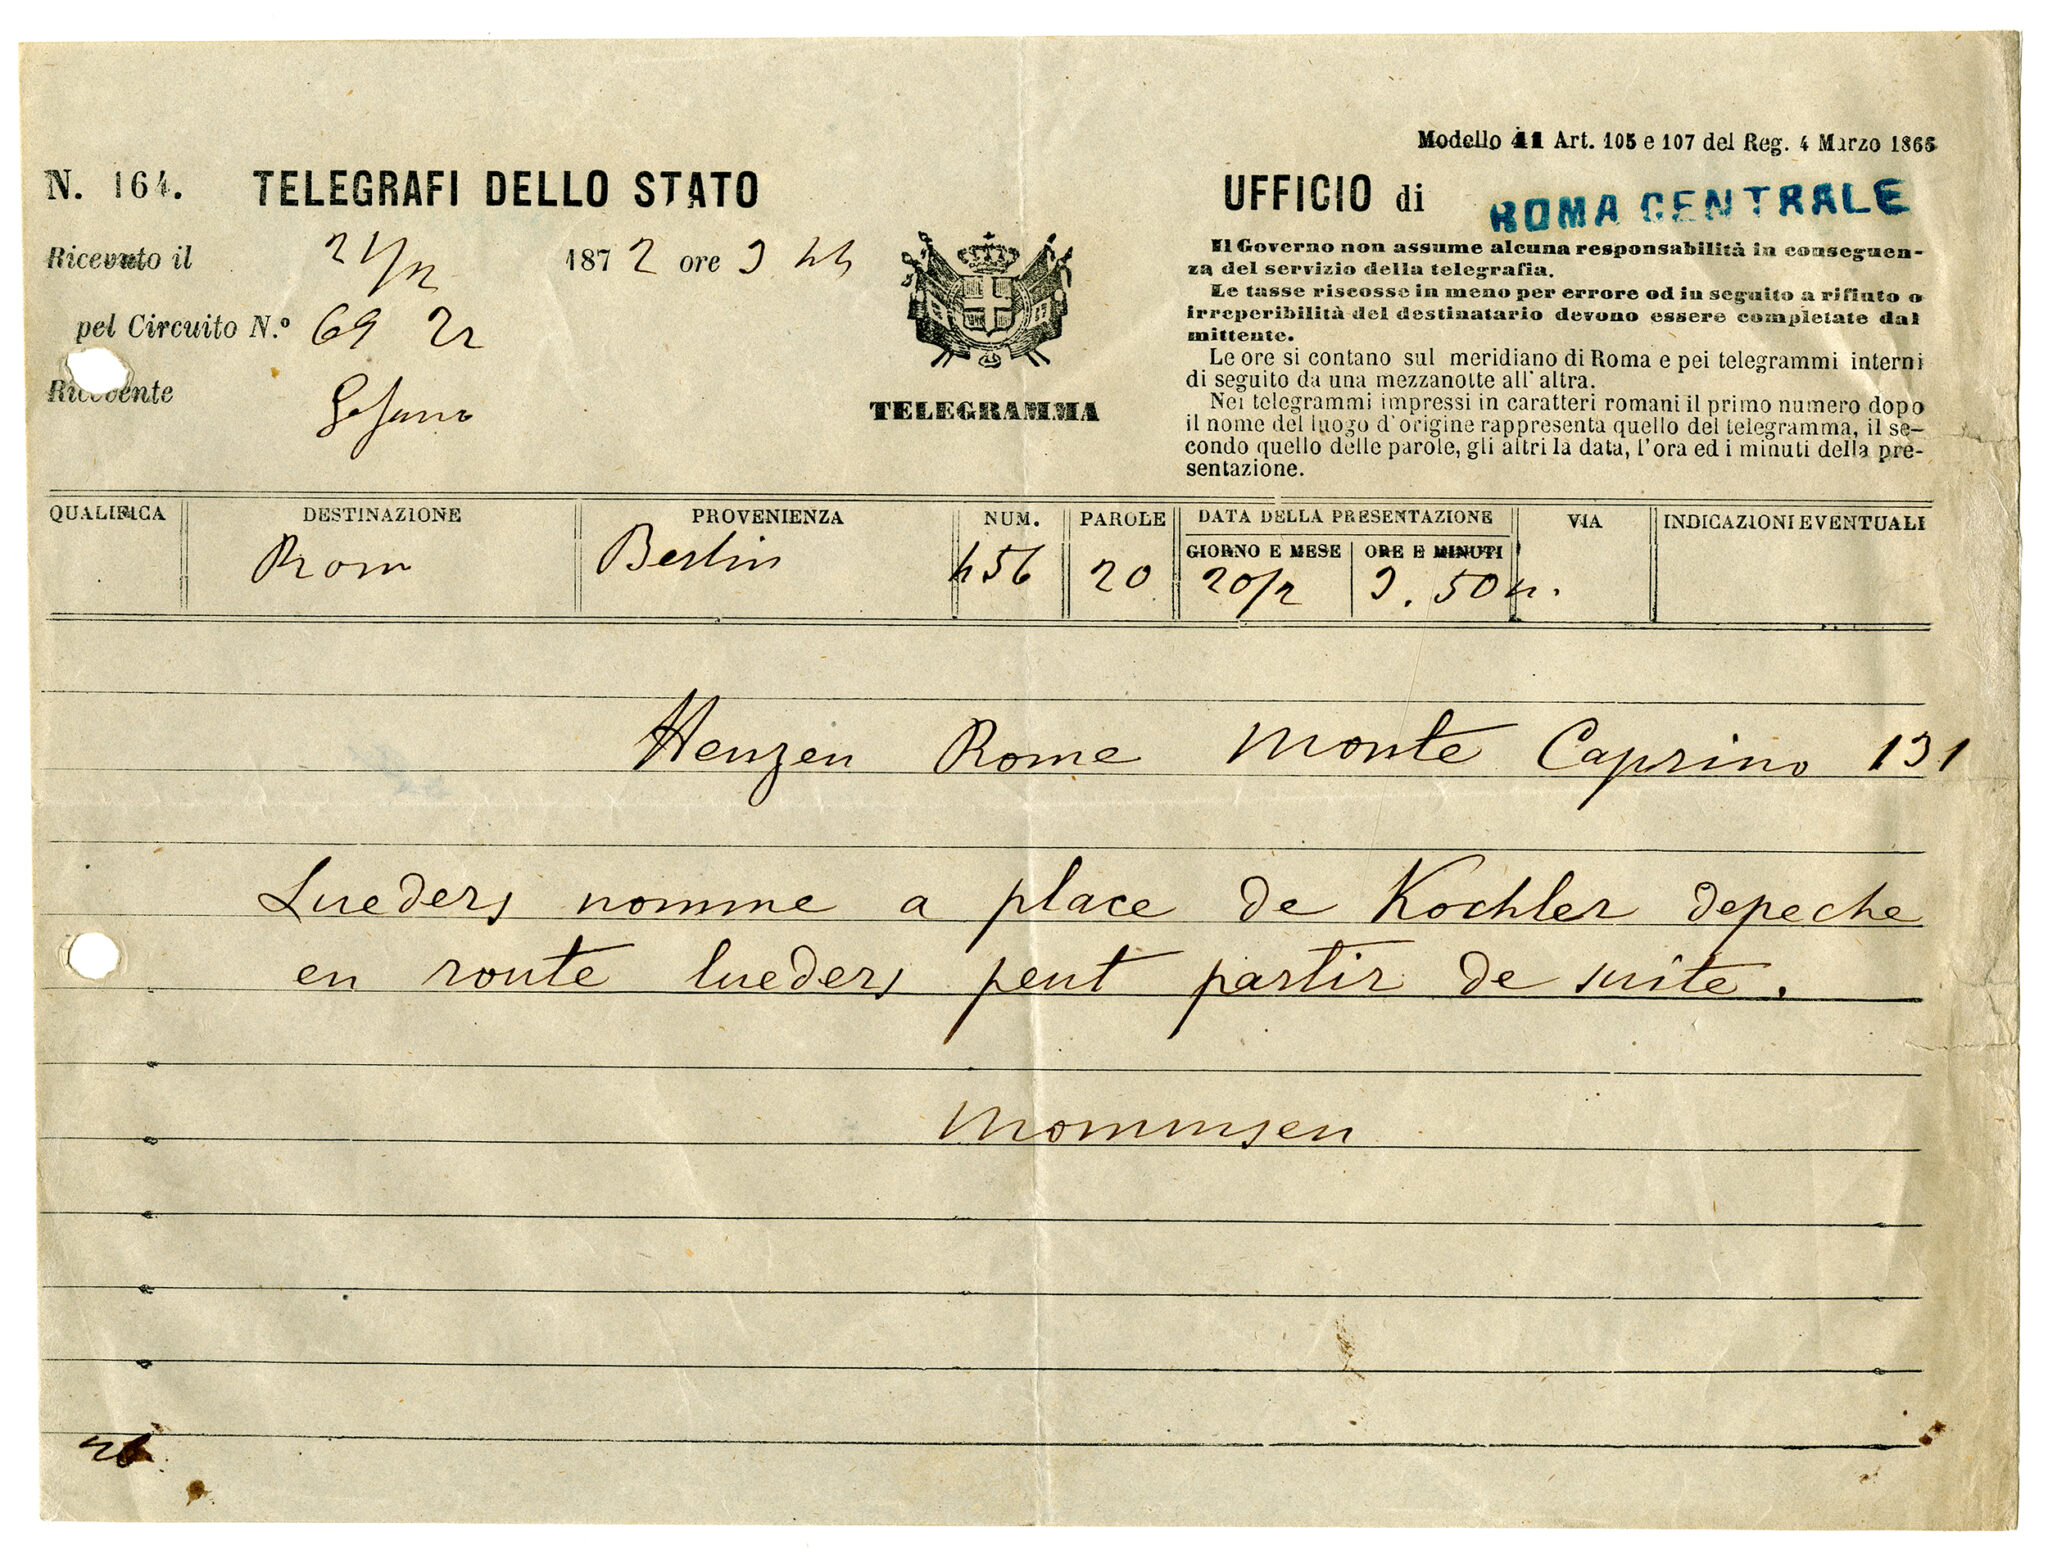 Modello 41 Art. 105 e 107 del Reg. 4 Marzo 1865
N. 164. TELEGRAFI DELLO STATO
UFFICIO di ROMA CENTRALE
Ricevuto il 21/12 1872 ore 9
pel Circuito N.º 69
Ricevente
TELEGRAMMA
Il Governo non assume alcuna responsabilità in conseguen-
za del servizio della telegrafia.
Le tasse riscosse in meno per errore od in seguito a rifiuto o
irreperibilità del destinatario devono essere completate dal
mittente.
Le ore si contano sul meridiano di Roma e pei telegrammi interni
di seguito da una mezzanotte all'altra.
Nei telegrammi impressi in caratteri romani il primo numero dopo
il nome del luogo d'origine rappresenta quello del telegramma, il se-
condo quello delle parole, gli altri la data, l'ora ed i minuti della pre-
sentazione.
QUALIFICA DESTINAZIONE PROVENIENZA NUM. PAROLE DATA DELLA PRESENTAZIONE VIA INDICAZIONI EVENTUALI
GIORNO E MESE ORE E MINUTI
Rom Berlin 456 20 20/12 9.50
Henzen Rome Monte Caprino 131
Lueders nomme a place de Kochler depeche
en route lueders peut partir de suite.
Mommsen